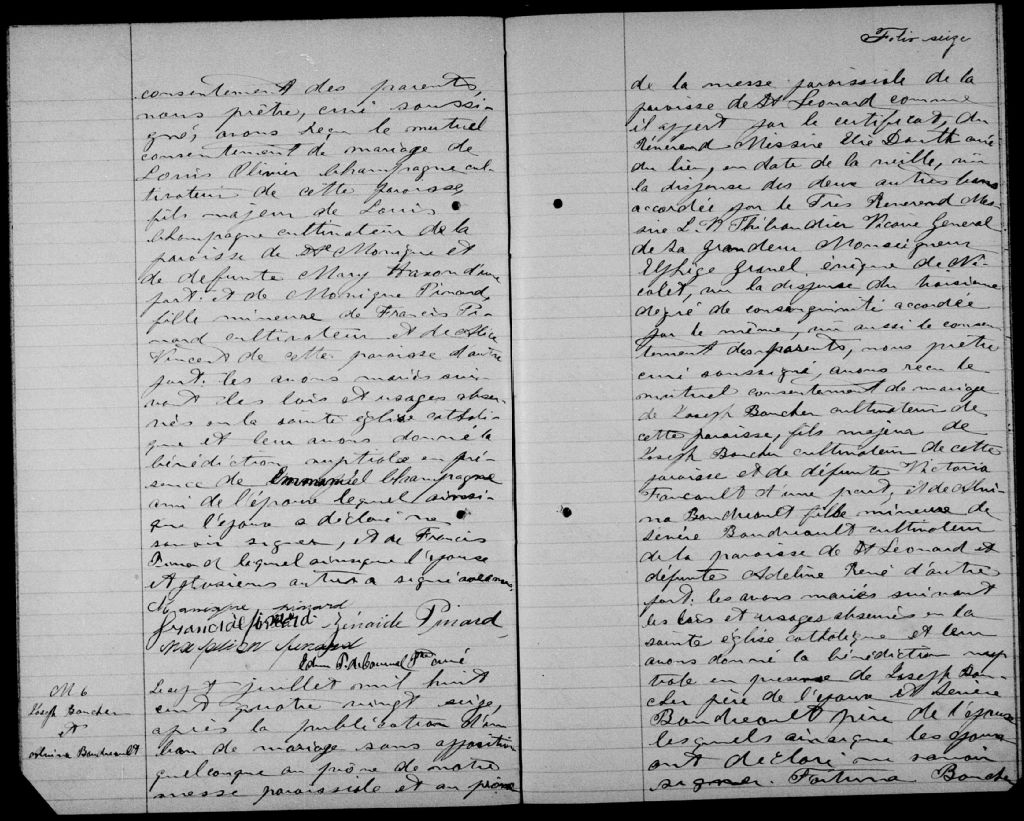 consentement des parents,
nous prêtre, curé soussi-
gné, avons reçu le mutuel
consentement de mariage de
Louis Olivier Champagne cul-
tivateur de cette paroisse
fils majeur de Louis
Champagne cultivateur de la
paroisse de Ste Monique et
de defunte Mary d'une
part et de Monique Pinard,
fille mineure de Francis Pi-
nard cultivateur et de Alice
Vincent de cette paroisse d'autre
part: les avons mariés sui-
vant les lois et usages obser-
vés en la sainte eglise catholi-
que et leur avons donné la
bénédiction nuptiale en pré-
sence de Emmanuel Champagne
ami de l'époux lequel ainsi
que l'époux a déclaré ne
savoir signer, et de Francis
Pinard lequel ainsique l'épouse
et plusieurs autres a signé avec nous.
pinard
Zénaïde Pinard,
pinard
Ptre curé
M 6
Joseph Boucher
et
Alvina Boudreault
Le sept juillet mil huit
cent quatre vingt seize,
après la publication d'un
ban de mariage sans opposition
quelconque au prône de notre
messe paroissiale et au prône
Folio seize
de la messe paroissiale de la
paroisse de St Leonard comme
il appert par le certificat, du
Révérend Messire Elie Dauth curé
du lieu, en date de la veille, vu
la dispense des deux autres bans
accordée par le Très Reverend Mes-
sire L. V. Thibaudier Vicaire General
de Sa Grandeur Monseigneur
Elphège Gravel, évêque de Ni-
colet, vu la dispense du troisième
degré de consanguinité accordée
par le même, vu aussi le consen-
tement des parents, nous prêtre
curé soussigné, avons reçu le
mutuel consentement de mariage
de Joseph Boucher cultivateur de
cette paroisse, fils majeur de
Joseph Boucher cultivateur de cette
paroisse et de défunte Victoria
Foucault d'une part, et de Alvi-
na Boudreault fille mineure de
Sévère Boudreault cultivateur
de la paroisse de St Leonard et
défunte Adeline René d'autre
part: les avons mariés suivant
les lois et usages observés en la
sainte eglise catholique et leur
avons donné la bénédiction nup-
tiale en présence de Joseph Bou-
cher père de l'époux et Sévère
Boudreault père de l'épouse
lesquels ainsique les époux
ont déclaré ne savoir
signer. Fortuna Boucher